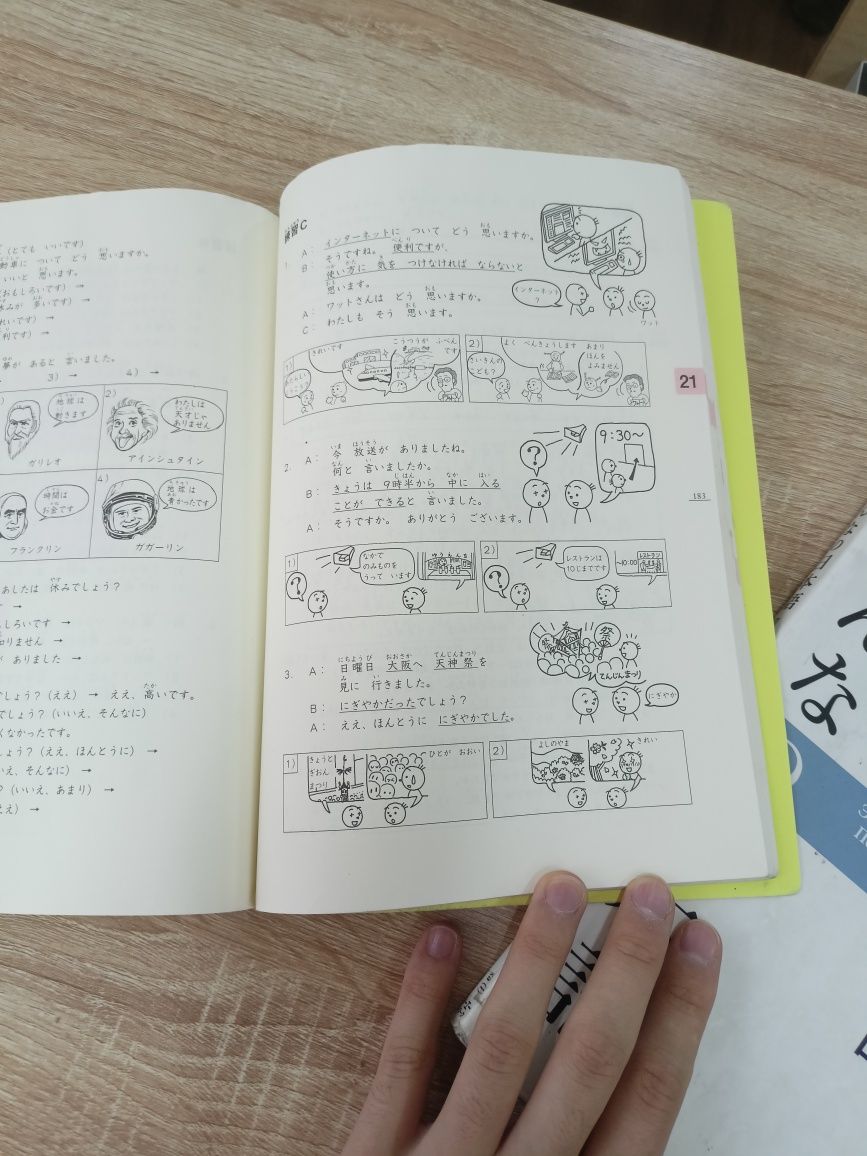 (とても いいです)
動車に ついて どう 思いますか。
いいと 思います。
おもしろいです) →
多いです) →
れいです) →
利です) →
夢が あると 言いました。
3) →
4) →
地球は
動きます
ガリレオ
2)
わたしは
天才じゃ
ありません
アインシュタイン
時間は
お金です
フランクリン
4)
地球は
青かったです
ガガーリン
あしたは 休みでしょう?
→
しろいです →
知りません →
が ありました →
でしょう?(ええ) → ええ、高いです。
でしょう?(いいえ、そんなに)
くなかったです。
しょう?(ええ、ほんとうに) →
いえ、そんなに) →
?(いいえ、あまり) →
ええ) →
練習C
1.
A: インターネットに ついて どう 思いますか。
B: そうですね。 便利ですが、
使い方に 気を つけなければ ならないと
思います。
A: ワットさんは どう 思いますか。
C: わたしも そう 思います。
インターネット
?
ワット
1)
きれいです
こうつうが ふべん
です
2)
よく べんきょうします
さいきんの
こども?
あまり
ほんを
よみません
21
2.
A: 今 放送が ありましたね。
何と 言いましたか。
B: きょうは 9時半から 中に 入る
ことが できると 言いました。
A: そうですか。 ありがとう ございます。
?
9:30~
183
1)
?
なかで
のみものを
うって います
ゆうえんち
2)
?
レストランは
10じまでです
~10:00
レストラン
3.
A: 日曜日 大阪へ 天神祭を
見に 行きました。
B: にぎやかだったでしょう?
A: ええ、ほんとうに にぎやかでした。
祭
てんじんまつり
にぎやか
1)
きょうと
ぎおん
まつり
ひとが おおい
2)
よしのやま
きれい